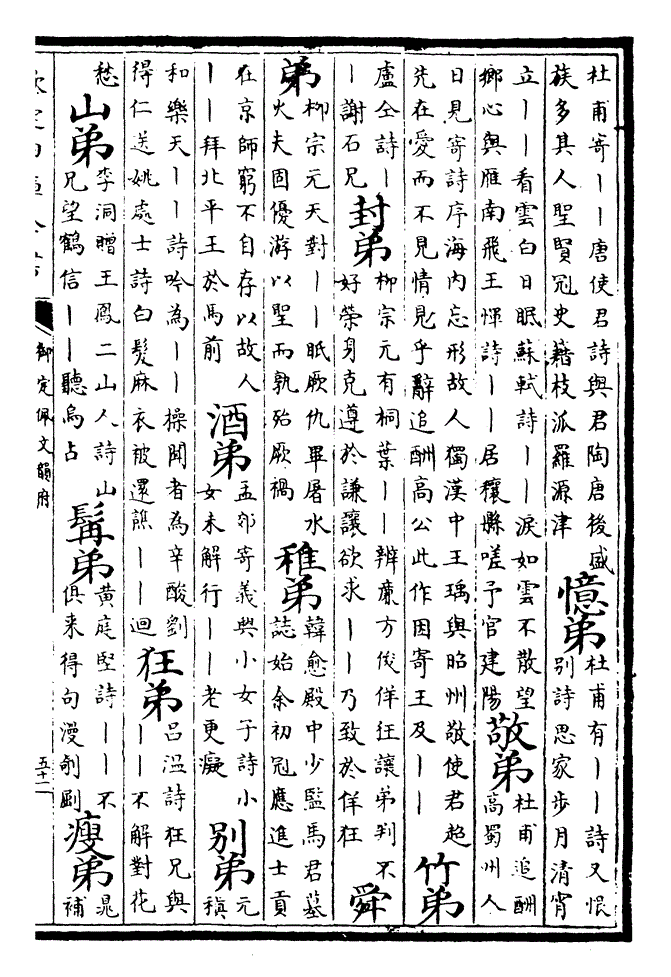 杜甫寄丨丨唐使君詩與君陶唐後盛
族多其人聖賢冠史籍枝派羅源津
憶弟
杜甫有丨丨詩又恨
别詩思家步月清宵
立丨丨看雲白日眠蘇軾詩丨丨淚如雲不散望
鄉心與雁南飛王惲詩丨丨居穰縣嗟予官建陽
敬弟
杜甫追酬
高蜀州人
日見寄詩序海内忘形故人獨漢中王瑀與昭州敬使君超
先在愛而不見情見乎辭追酬高公此作因寄王及丨丨
竹弟
盧仝詩丨
丨謝石兄
封弟
柳宗元有桐葉丨丨辨廉方俊佯狂讓弟判不
好榮身克遵於謙讓欲求丨丨乃致於佯狂
舜
弟
柳宗元天對丨丨眠厥仇畢屠水
火夫固優游以聖而孰殆厥禍
稚弟
韓愈殿中少監馬君墓
誌始余初冠應進士貢
在京師窮不自存以故人
丨丨拜北平王於馬前
酒弟
孟郊寄義興小女子詩小
女未解行丨丨老更癡
别弟
元
稹
和樂天丨丨詩吟為丨丨操聞者為辛酸劉
得仁送姚處士詩白髮麻衣被還譙丨丨迴
狂弟
呂温詩狂兄與
丨丨不解對花
愁
山弟
李洞贈王鳳二山人詩山
兄望鶴信丨丨聽烏占
髯弟
黄庭堅詩丨丨不
俱来得句漫剞劂
瘦弟
晁
補
御定佩文韻府
五十二